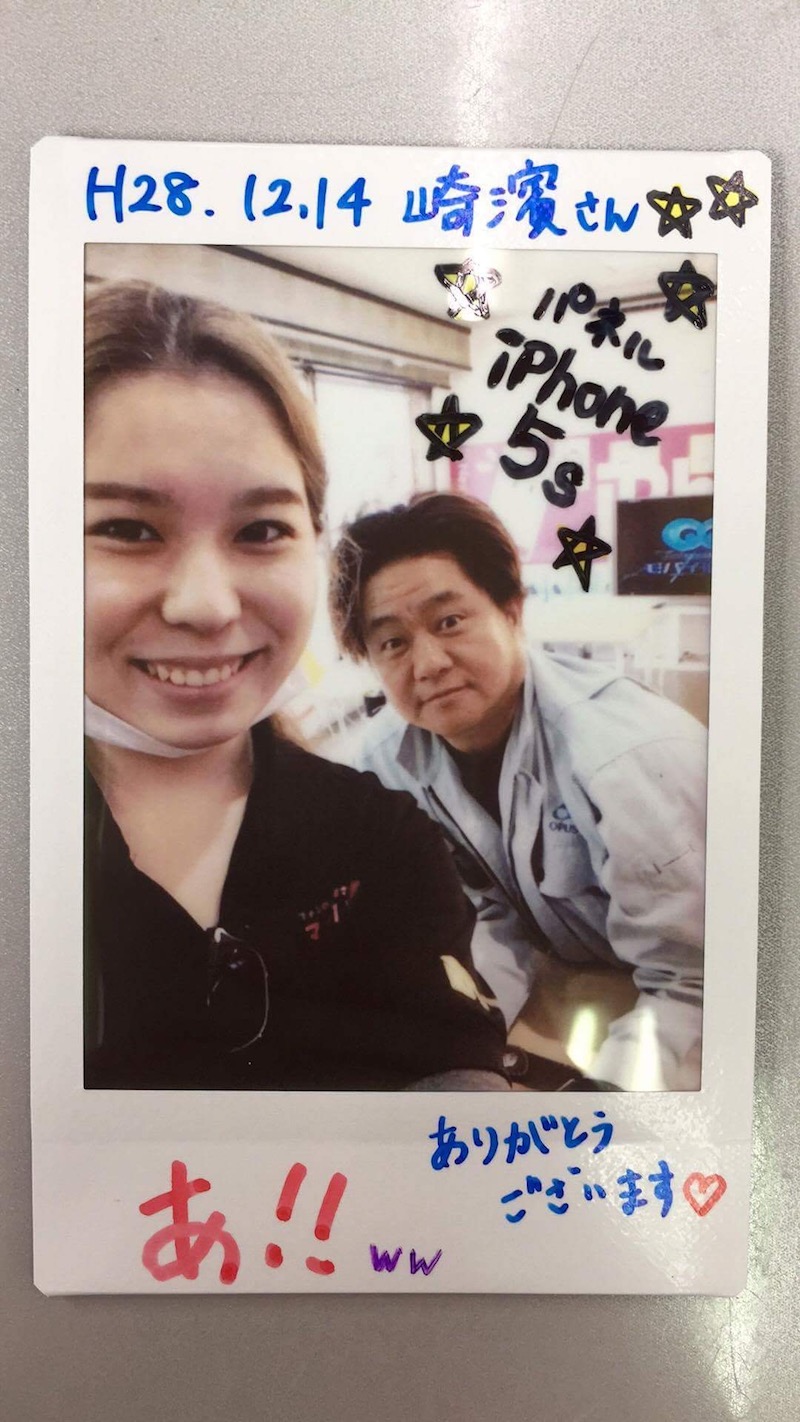 H28.12.14 崎濱さん
パネル
iPhone
5s
OPUS
ありがとう
ございます
あ!!
ww